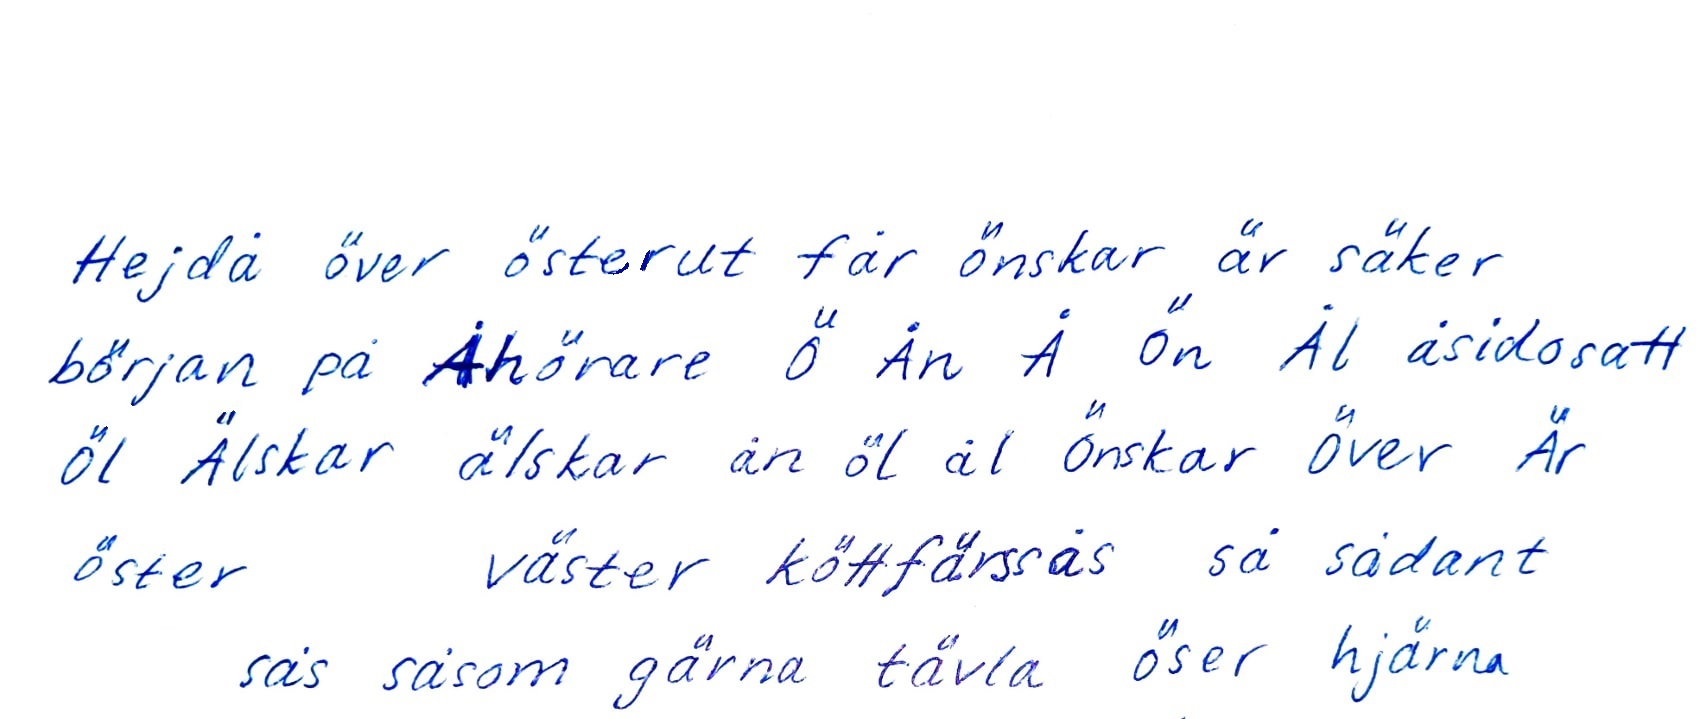 Hejdå över österut får önskar är säker
början på Åhörare Ö Ån Å Ön Ål åsidosatt
Öl Älskar älskar ån öl ål Önskar Över Är
öster väster köttfärssås så sådant
sås såsom gärna tävla öser hjärna